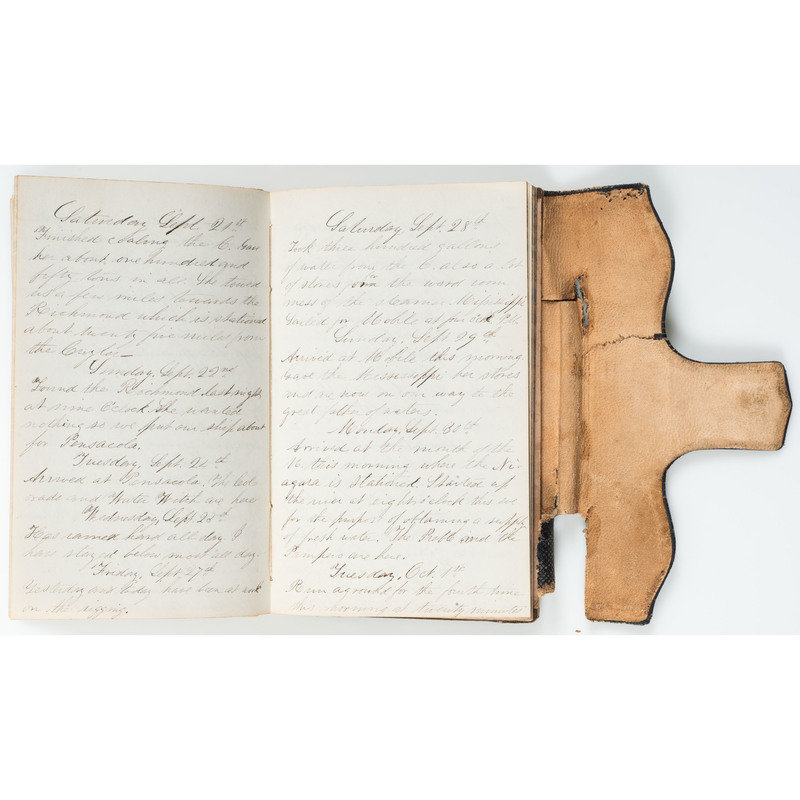 Saturday, Sept. 21st
Finished coaling the C. Gave
her about one hundred and
fifty tons in all. She towed
us a few miles towards the
Richmond which is stationed
about twenty five miles from
the Cuyler—
Sunday, Sept. 22nd
Found the Richmond last night
at nine O'clock. She wanted
nothing so we put our ship about
for Pensacola.
Tuesday, Sept. 24th
Arrived at Pensacola. The Colo-
rado and Water Witch are here
Wednesday, Sept. 25th
Has rained hard all day. I
have stayed below most all day.
Friday, Sept. 27th
Yesterday and today have been at work
on the rigging.
Saturday, Sept. 28th
Took three hundred gallons
of water from the C. also a lot
of stores for the ward room
mess of the steamer Mississippi
Sailed for Mobile at
Sunday, Sept. 29th
Arrived at Mobile this morning.
Gave the Mississippi her stores
and are now on our way to the
great father of waters.
Monday, Sept. 30th
Arrived at the mouth of the
M. this morning where the Ni-
agara is stationed. Started up
the river at eight o'clock this eve
for the purpose of obtaining a supply
of fresh water. The and the
are here.
Tuesday, Oct. 1st
Run aground for the fourth time
this morning at twenty minutes